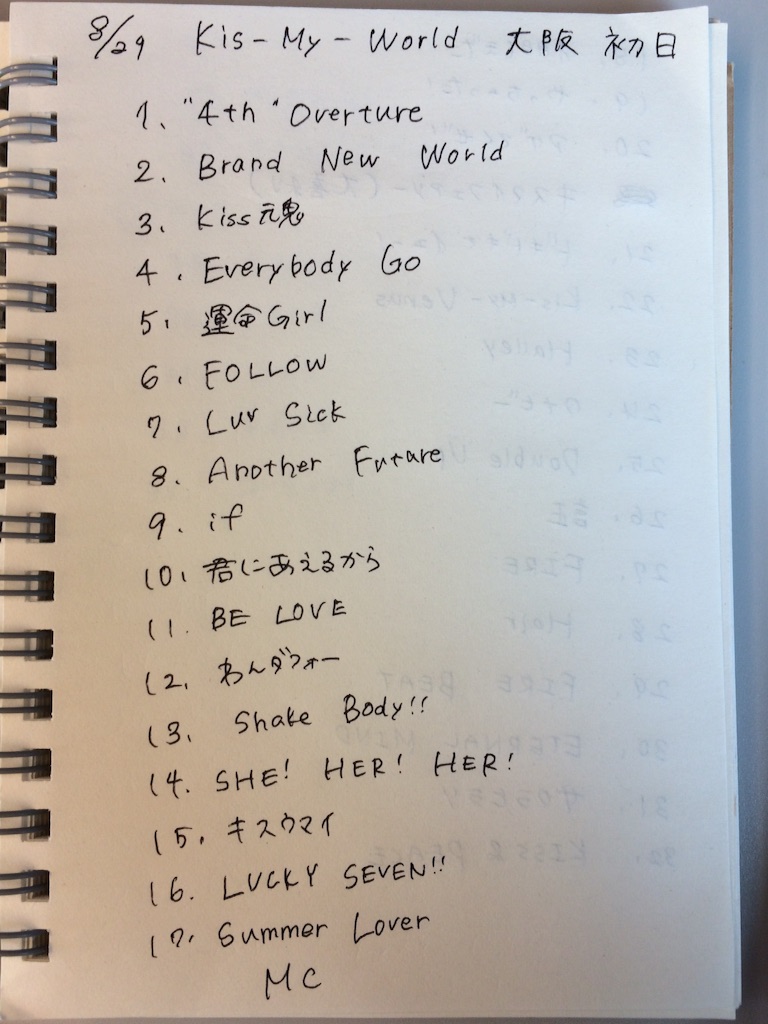 8/29 Kis-My-World 大阪 初日
1、"4th" Overture
2、Brand New World
3、Kiss魂
4、Everybody Go
5、運命Girl
6、FOLLOW
7、Luv Sick
8、Another Future
9、if
10、君にあえるから
11、BE LOVE
12、わんダフォー
13、Shake Body!!
14、SHE! HER! HER!
15、キスウマイ
16、LUCKY SEVEN!!
17、Summer Lover
MC